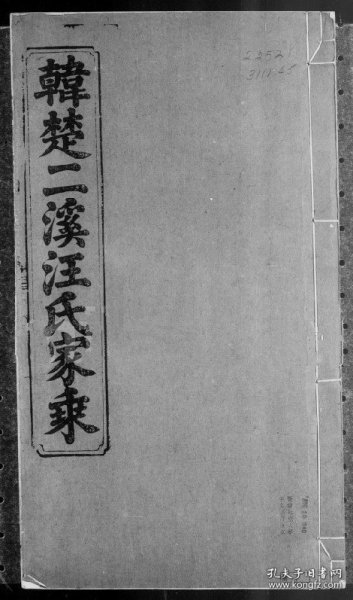 韓楚二溪汪氏家乘
2252
孔夫子旧书网
www.kongfz.com